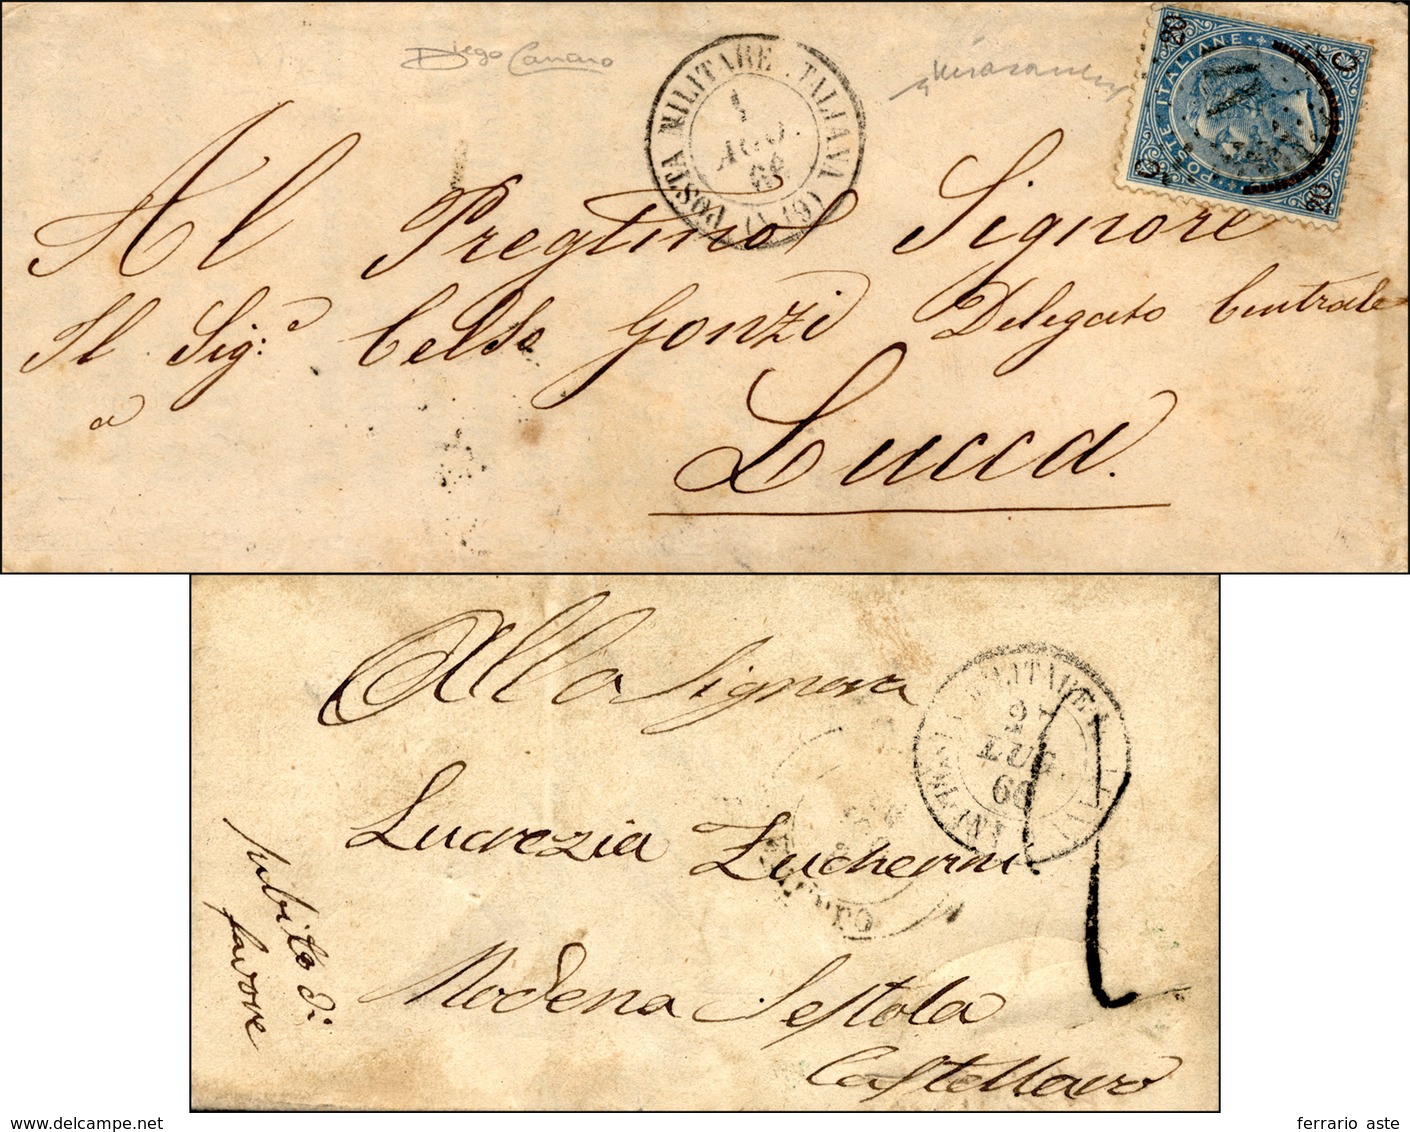 Diego Canaro
POSTA MILITARE ITALIANA (N. 19)
1
AGO.
66
C 20
20 C
POSTE ITALIANE
C 20
Al Pregtimo Signore
Il Sig:e Celso Gonzi Delegato Centrale
a Lucca.
Alla Signora
POSTA MILITARE ITAL
27
LUG.
66
Lucrezia Zucherini
subito di
favore
Modena Sestola
Castellaro
ferrario aste